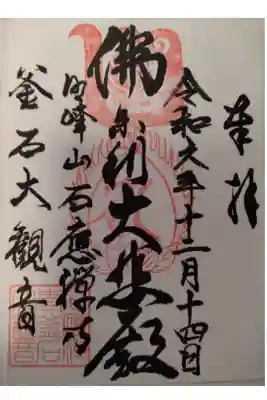 奉拝
令和六年十二月十四日
佛舎利大悲殿
明峰山石應禅寺
釜石大観音